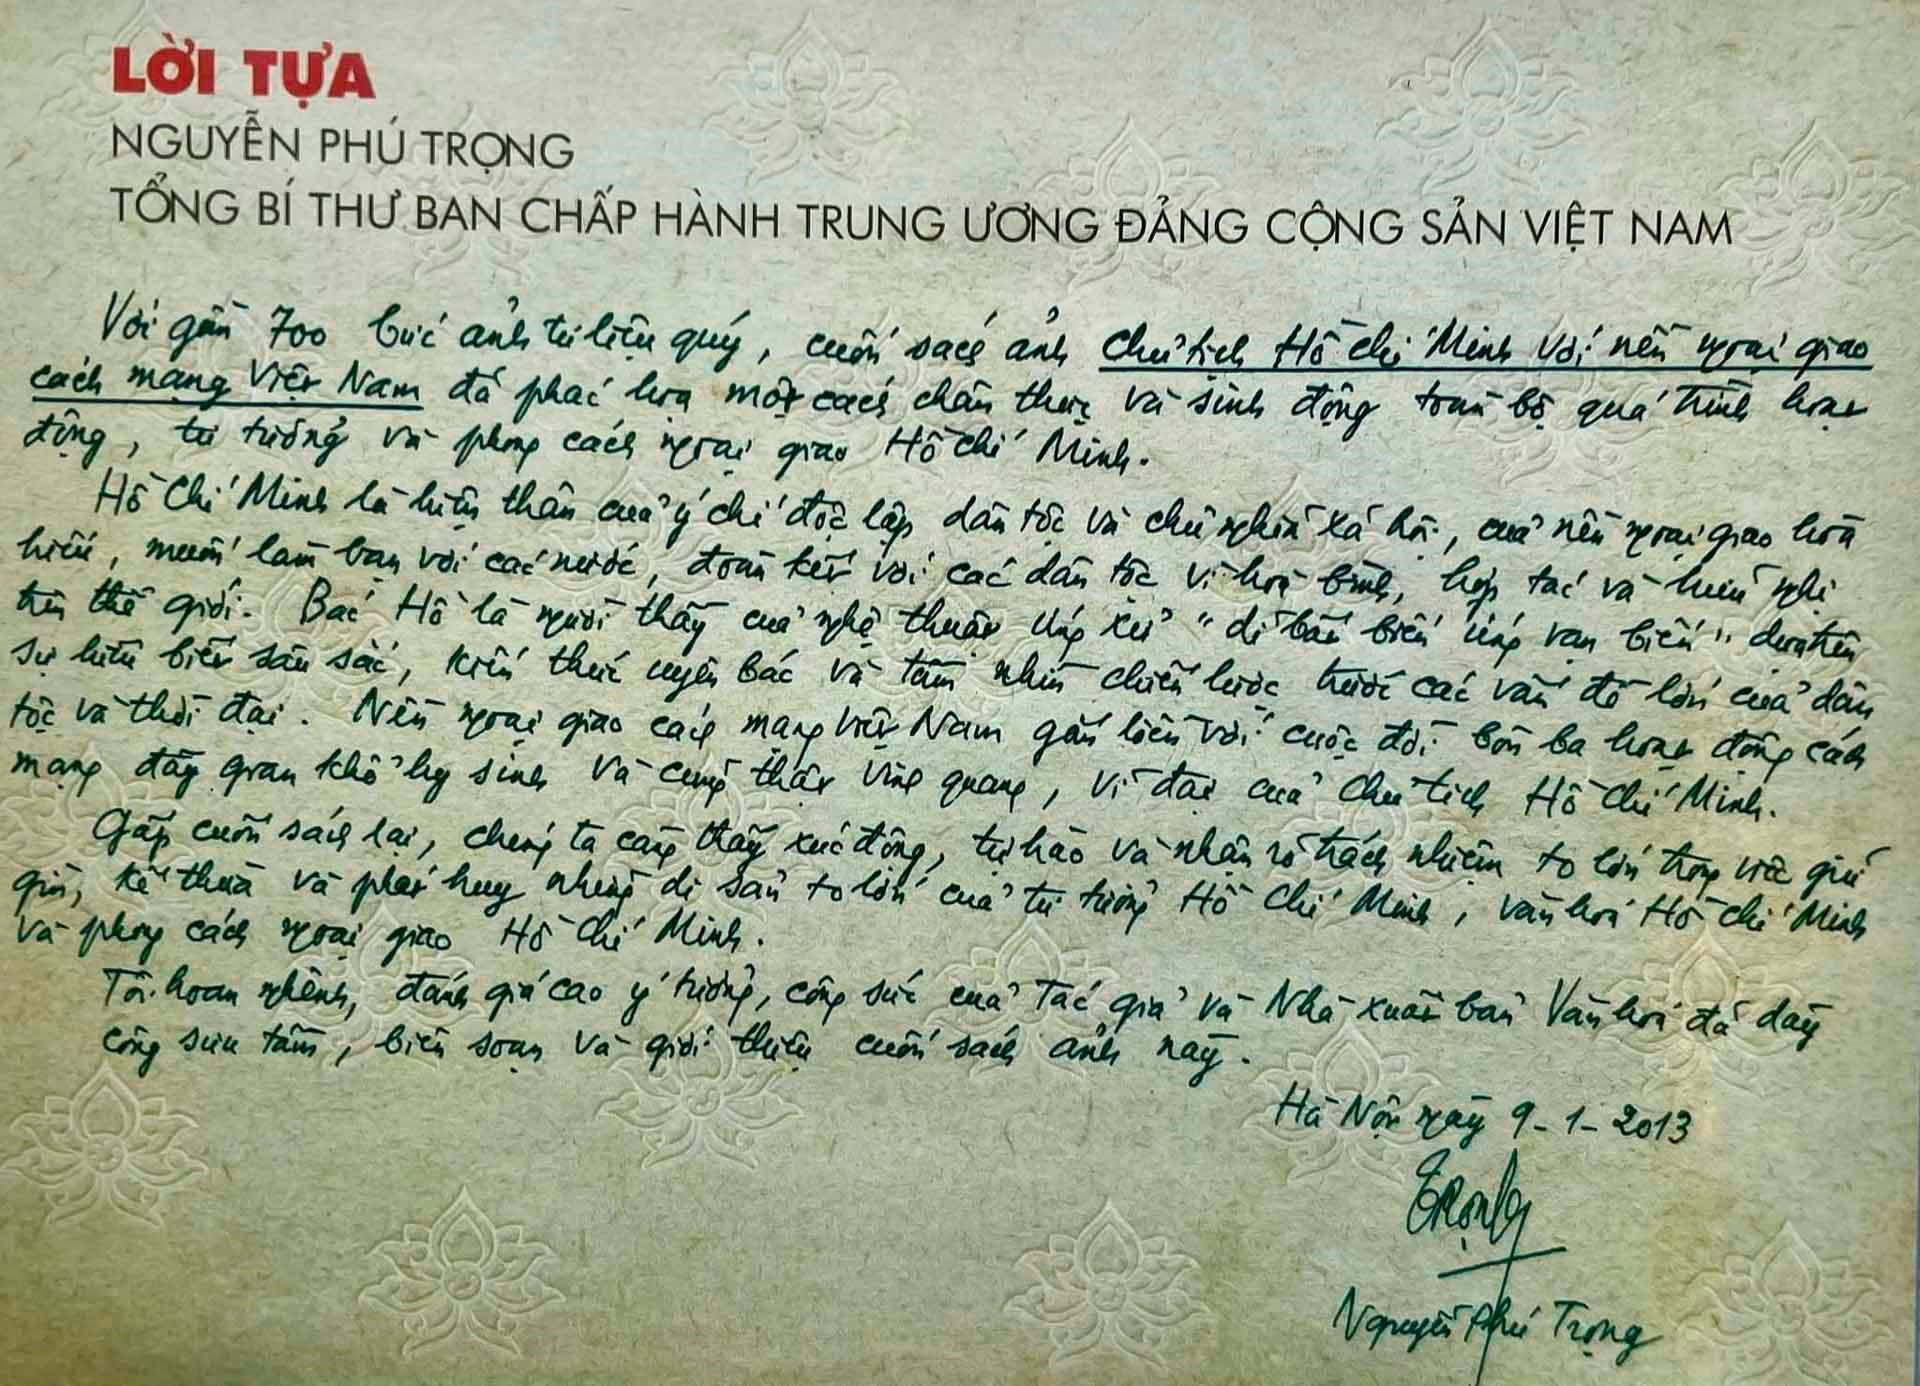 LỜI TỰA
NGUYỄN PHÚ TRỌNG
TỔNG BÍ THƯ BAN CHẤP HÀNH TRUNG ƯƠNG ĐẢNG CỘNG SẢN VIỆT NAM
Với gần 700 bức ảnh tư liệu quý, cuốn sách ảnh Chủ tịch Hồ Chí Minh với nền ngoại giao
cách mạng Việt Nam đã phác họa một cách chân thực và sinh động toàn bộ quá trình hoạt
động, tư tưởng và phong cách ngoại giao Hồ Chí Minh.
Hồ Chí Minh là hiện thân của ý chí độc lập dân tộc và chủ nghĩa xã hội, của nền ngoại giao hoà
hiếu, muốn làm bạn với các nước, đoàn kết với các dân tộc vì hoà bình, hợp tác và hữu nghị
trên thế giới. Bác Hồ là người thầy của nghệ thuật ứng xử "dĩ bất biến ứng vạn biến" dựa trên
sự hiểu biết sâu sắc, kiến thức uyên bác và tầm nhìn chiến lược trước các vấn đề lớn của dân
tộc và thời đại. Nền ngoại giao cách mạng Việt Nam gắn liền với cuộc đời bôn ba hoạt động cách
mạng đầy gian khổ hy sinh và cũng thật vinh quang, vĩ đại của Chủ tịch Hồ Chí Minh.
Gấp cuốn sách lại, chúng ta càng thấy xúc động, tự hào và nhận rõ trách nhiệm to lớn trong việc giữ
gìn, kế thừa và phát huy những di sản to lớn của tư tưởng Hồ Chí Minh, văn hoá Hồ Chí Minh
và phong cách ngoại giao Hồ Chí Minh.
Tôi hoan nghênh, đánh giá cao ý tưởng, công sức của Tác giả và Nhà xuất bản Văn hoá đã dày
công sưu tầm, biên soạn và giới thiệu cuốn sách ảnh này.
Hà Nội ngày 9-1-2013
Trọng
Nguyễn Phú Trọng